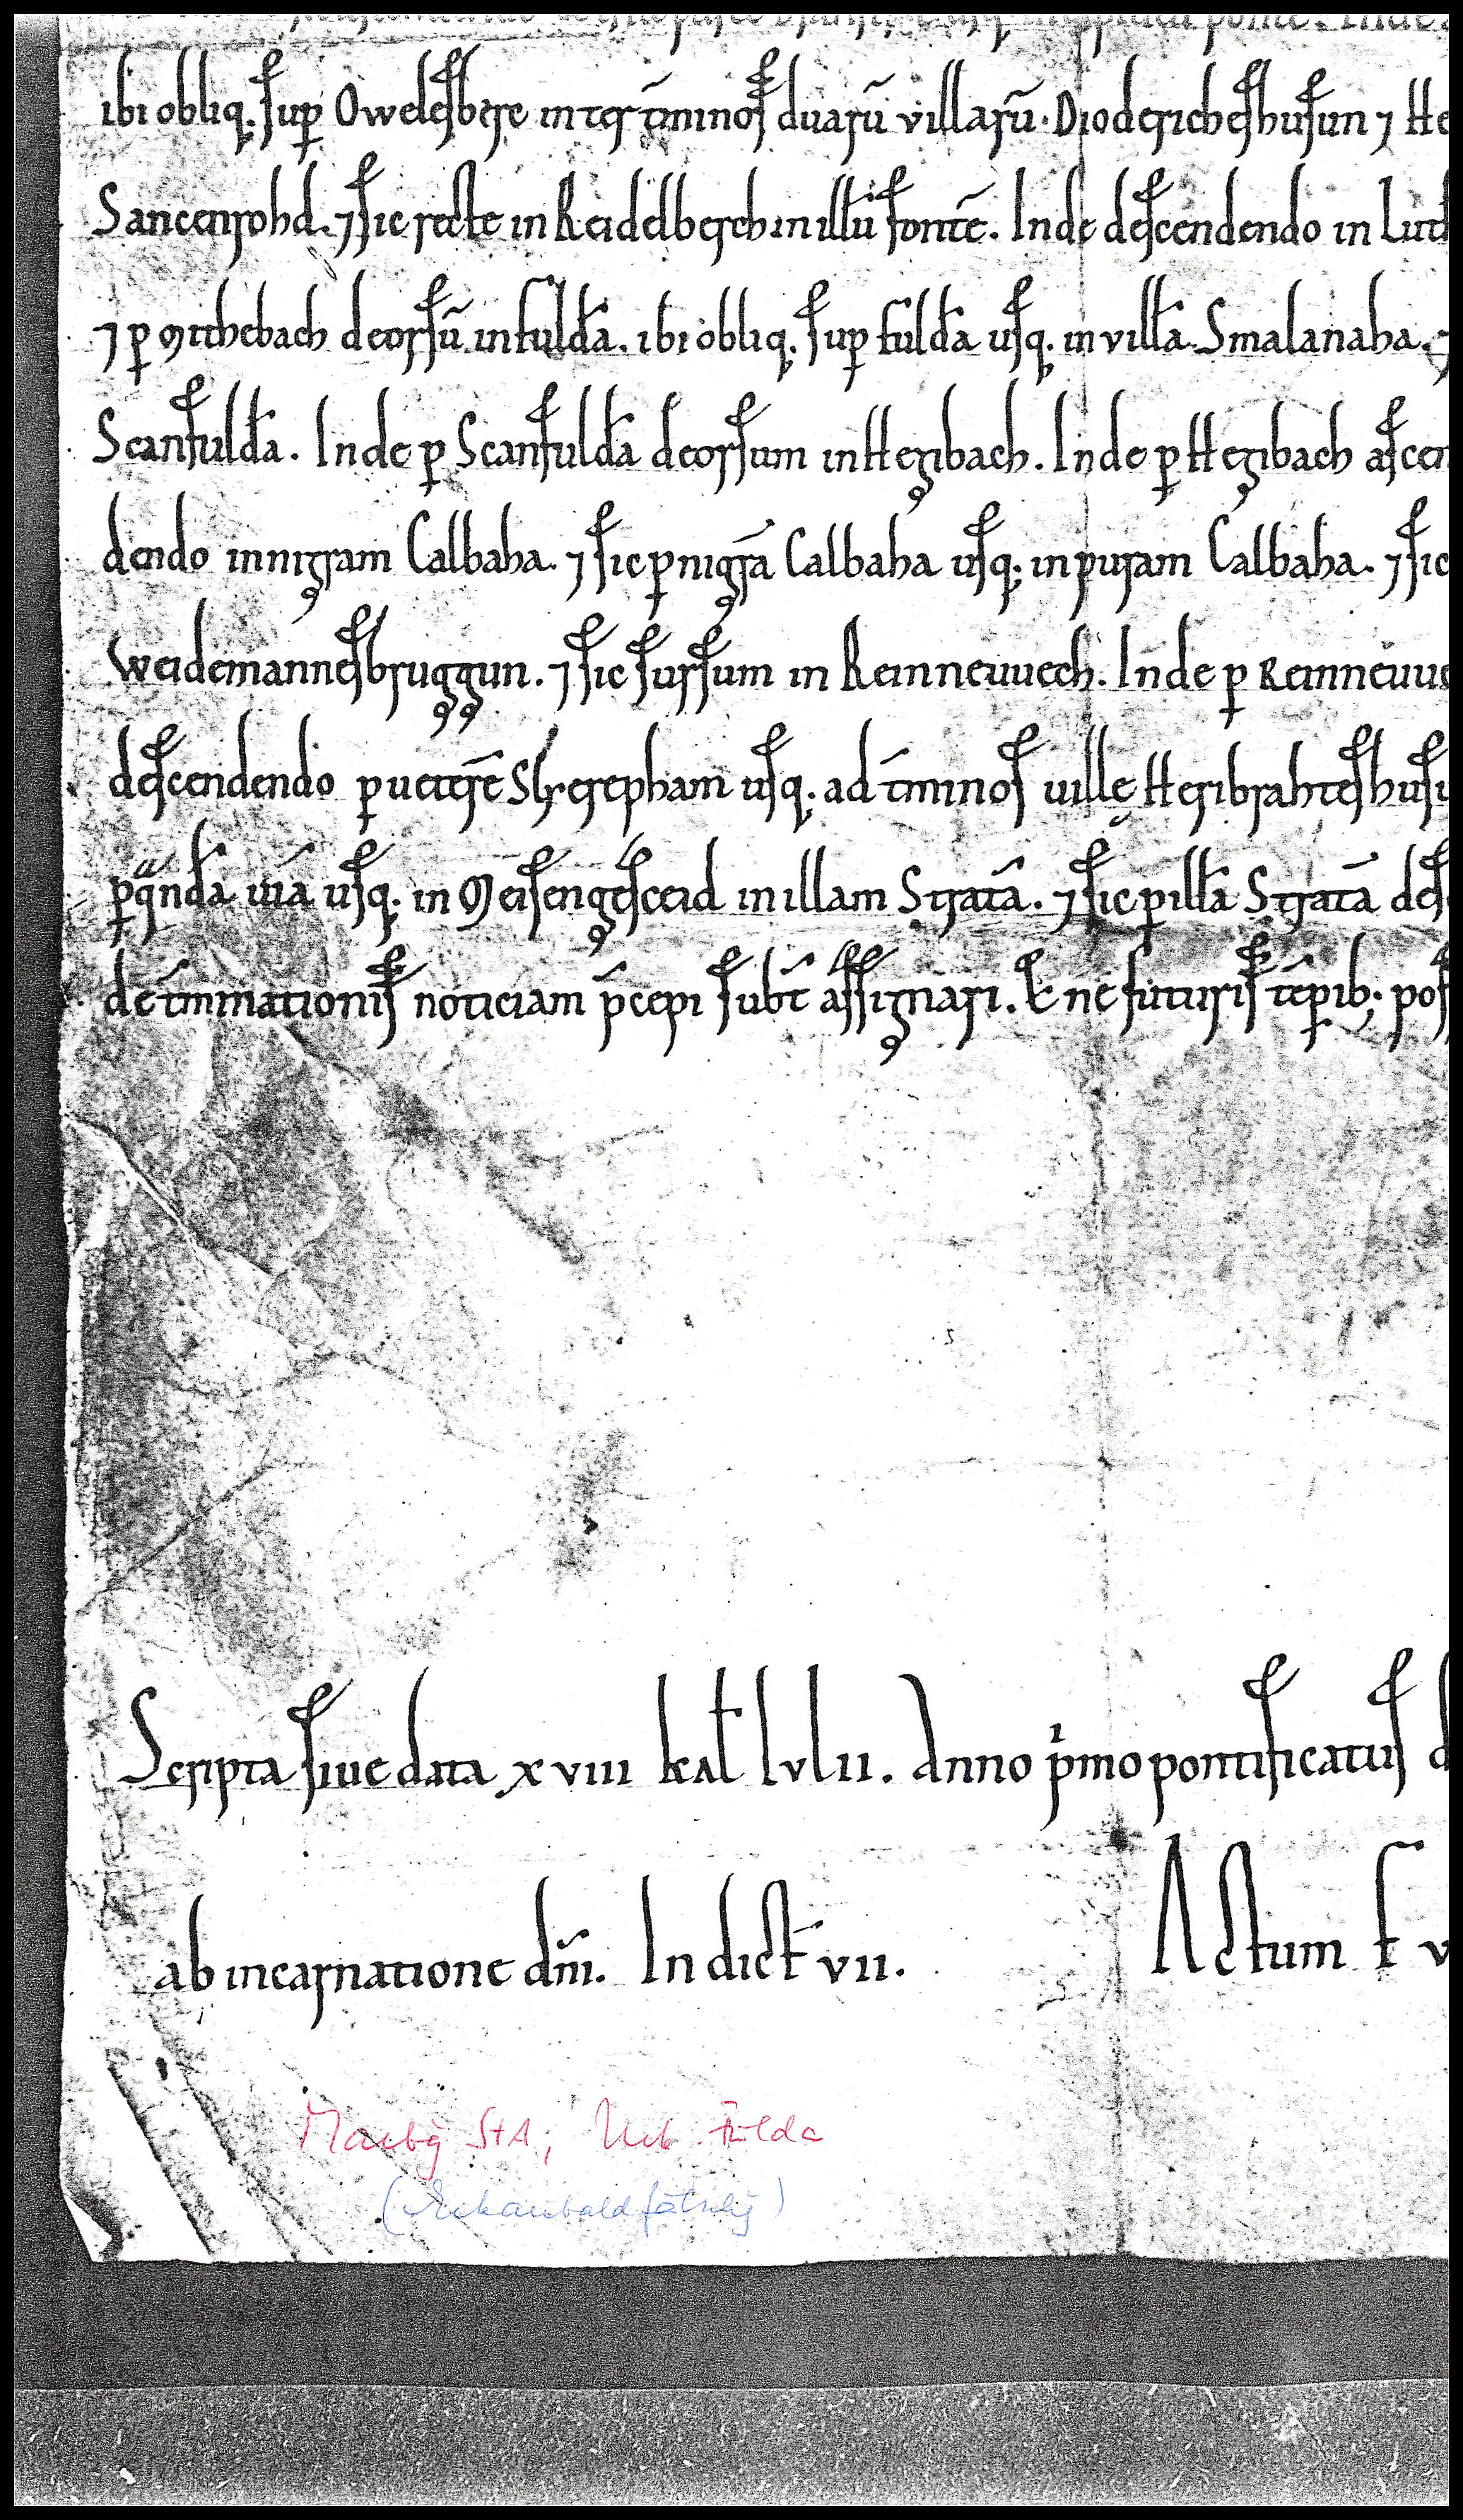 ibi obliq. sup Owelesberge inter t̄minos duarū villarū. Diodericheshusun ⁊ He
Sancenrohd. ⁊ sic recte in Reidelberch in illū fontē. Inde descendendo in Lut
⁊ p Michebach deorsū in fuldā. ibi obliq. sup fuldā usq. in villā Smalanaha. ⁊
Scanfuldā. Inde p Scanfuldā deorsum in Hegibach. Inde p Hegibach ascen
dendo in nigram Calbaha. ⁊ sic p nigrā Calbaha usq; in puram Calbaha. ⁊ sic
Weidemannesbruggun. ⁊ sic sursum in Reinnevuech. Inde p Reinnevue
descendendo p veterē Sherepham usq. ad t̄minos uillę Heribrahteshusu
p q̄ndā uiā usq. in Meisengesceid in illam Stratā. ⁊ sic p illā Stratā des
det̄minationis noticiam p̄cepi subt̄ assignari. Et ne futuris tēporib; pos
Scripta siue data xviii kal Iulii. Anno p̄mo pontificatus d
ab incarnatione dn̄i. Indict̄ vii. Actum f̄ v
Marbg StA, Urk. Fulda
(Erkanbald fälschg)